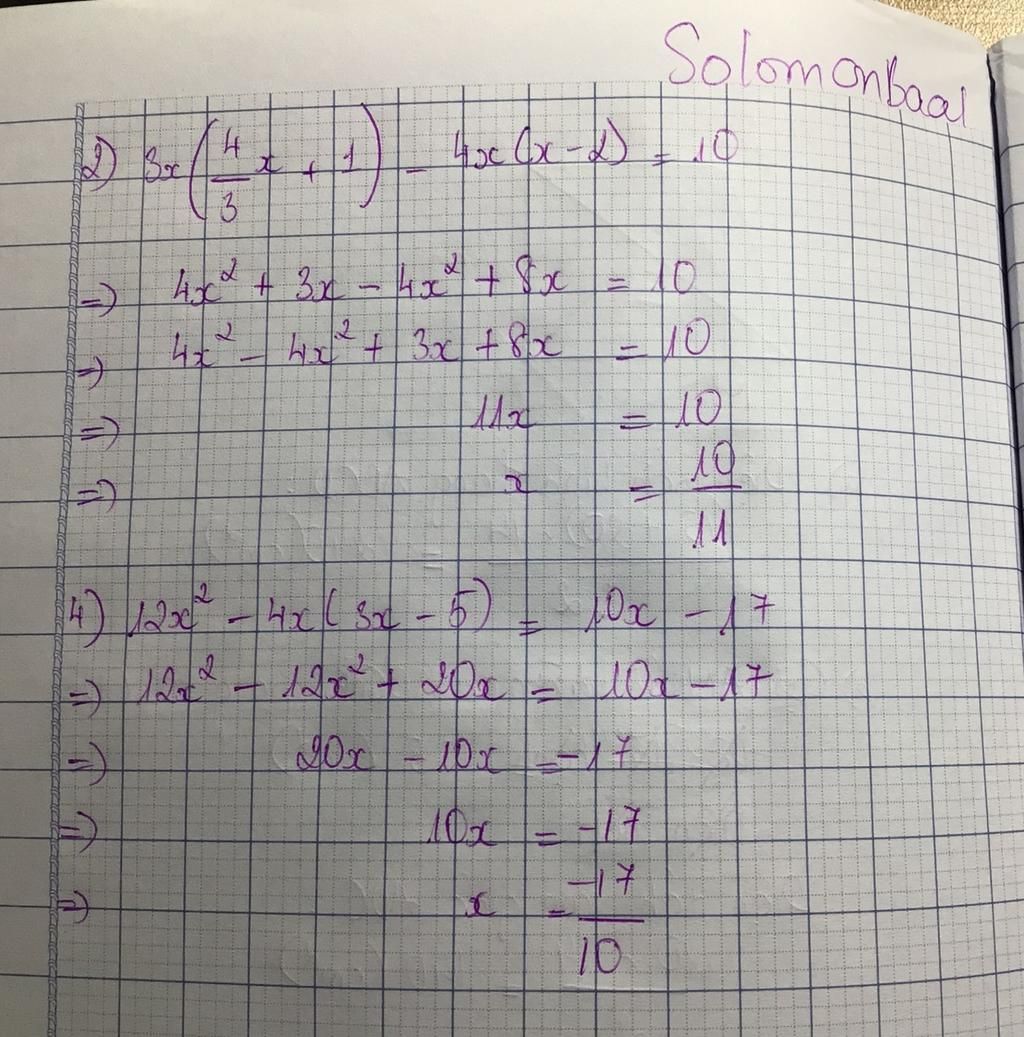 Solomonbaal
2) 3x(4/3 x + 1) - 4x(x - 2) = 10
=) 4x² + 3x - 4x² + 8x = 10
=) 4x² - 4x² + 3x + 8x = 10
=) 11x = 10
=) x = 10/11
4) 12x² - 4x(3x - 5) = 10x - 17
=) 12x² - 12x² + 20x = 10x - 17
=) 20x - 10x = -17
=) 10x = -17
=) x = -17/10